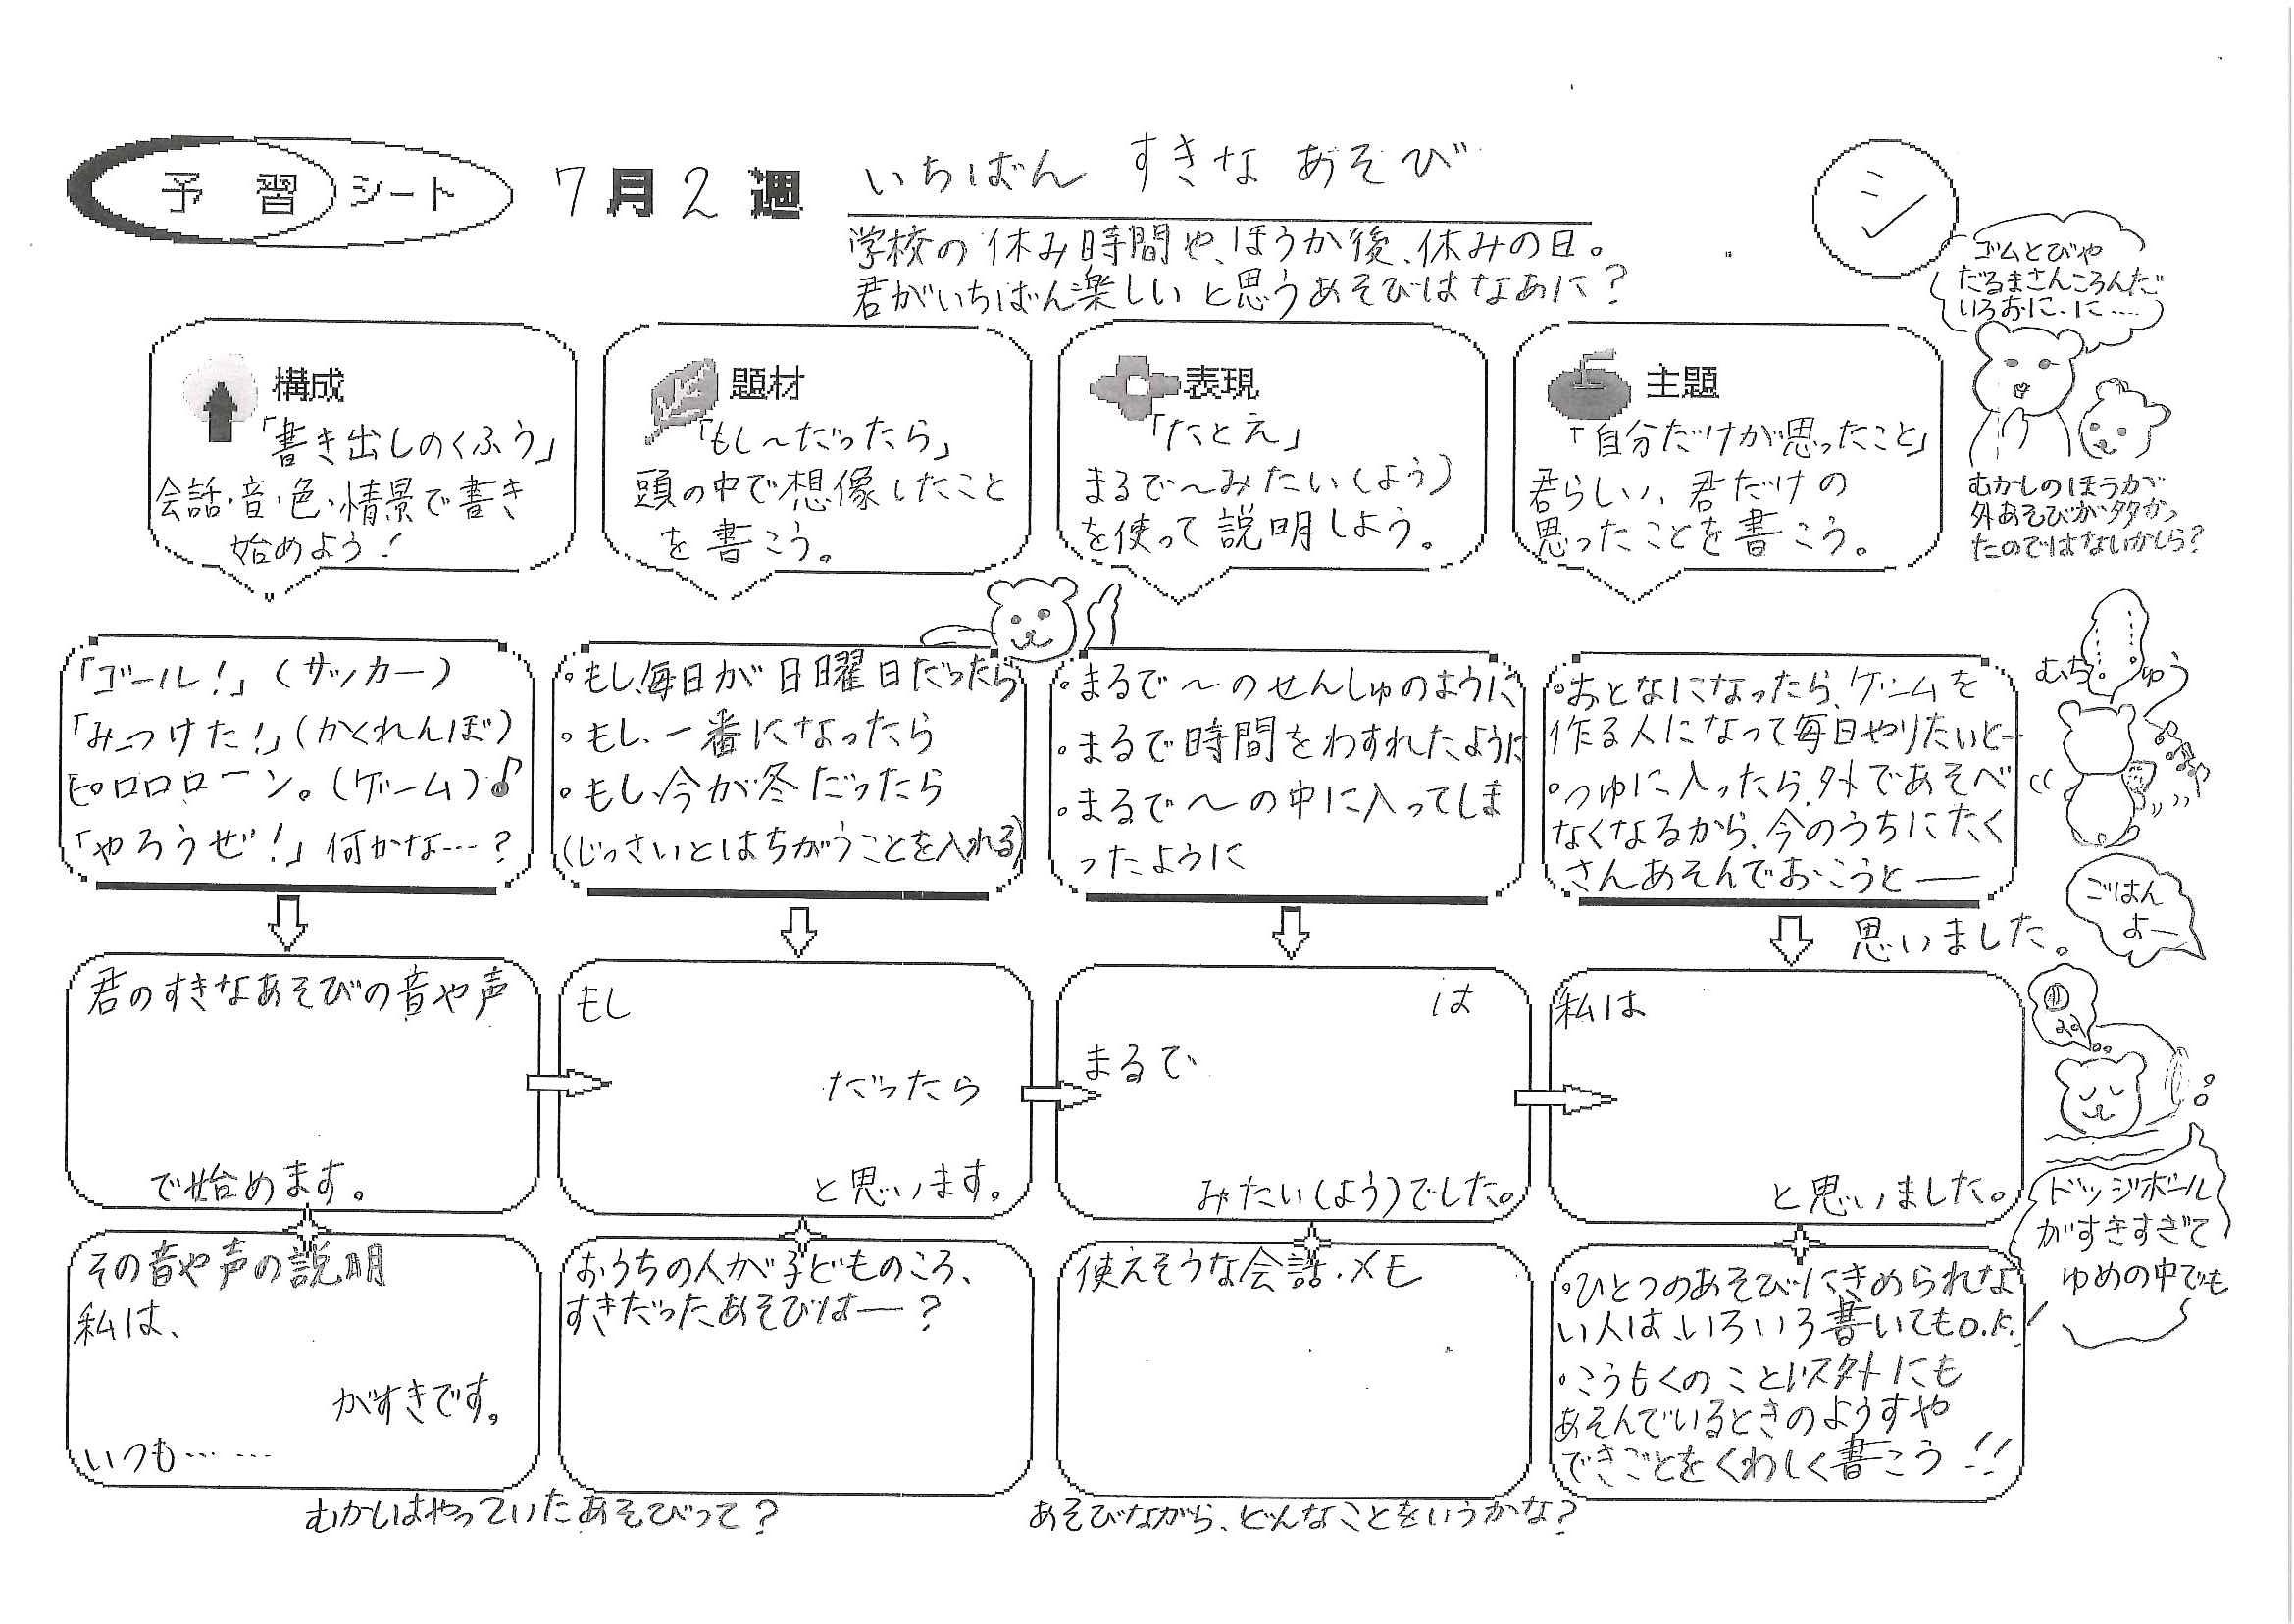 予習シート 7月2週 いちばん すきな あそび
シ
学校の休み時間や、ほうか後、休みの日。
君がいちばん楽しいと思うあそびはなあに？
ゴムとびや
だるまさんころんだ
いろおに、に…‥
むかしのほうが
外あそびが多かっ
たのではないかしら？
構成
「書き出しのくふう」
会話・音・色・情景で書き
始めよう！
題材
「もし～だったら」
頭の中で想像したこと
を書こう。
表現
「たとえ」
まるで～みたい（よう）
を使って説明しよう。
主題
「自分だけが思ったこと」
君らしい、君だけの
思ったことを書こう。
「ゴール！」（サッカー）
「みつけた！」（かくれんぼ）
ピロロローン。（ゲーム）♪
「やろうぜ！」何かな…‥？
・もし、毎日が日曜日だったら
・もし、一番になったら
・もし、今が冬だったら
（じっさいとはちがうことを入れる）
・まるで～のせんしゅのように
・まるで時間をわすれたように
・まるで～の中に入ってしま
ったように
・おとなになったら、ゲームを
作る人になって毎日やりたいと―
・つゆに入ったら、外であそべ
なくなるから、今のうちにたく
さんあそんでおこうと――
思いました。
むちゅう
ごはん
よー
君のすきなあそびの音や声
で始めます。
もし
だったら
と思います。
は
まるで
みたい（よう）でした。
私は
と思いました。
ドッジボール
がすきすぎて
ゆめの中でも
その音や声の説明
私は、
がすきです。
いつも…‥ …‥
おうちの人が子どものころ、
すきだったあそびは――？
使えそうな会話・メモ
・ひとつのあそびにきめられな
い人は、いろいろ書いてもO.K.！
・こうもくのこと以外にも
あそんでいるときのようすや
できごとをくわしく書こう!!
むかしはやっていたあそびって？
あそびながら、どんなことをいうかな？